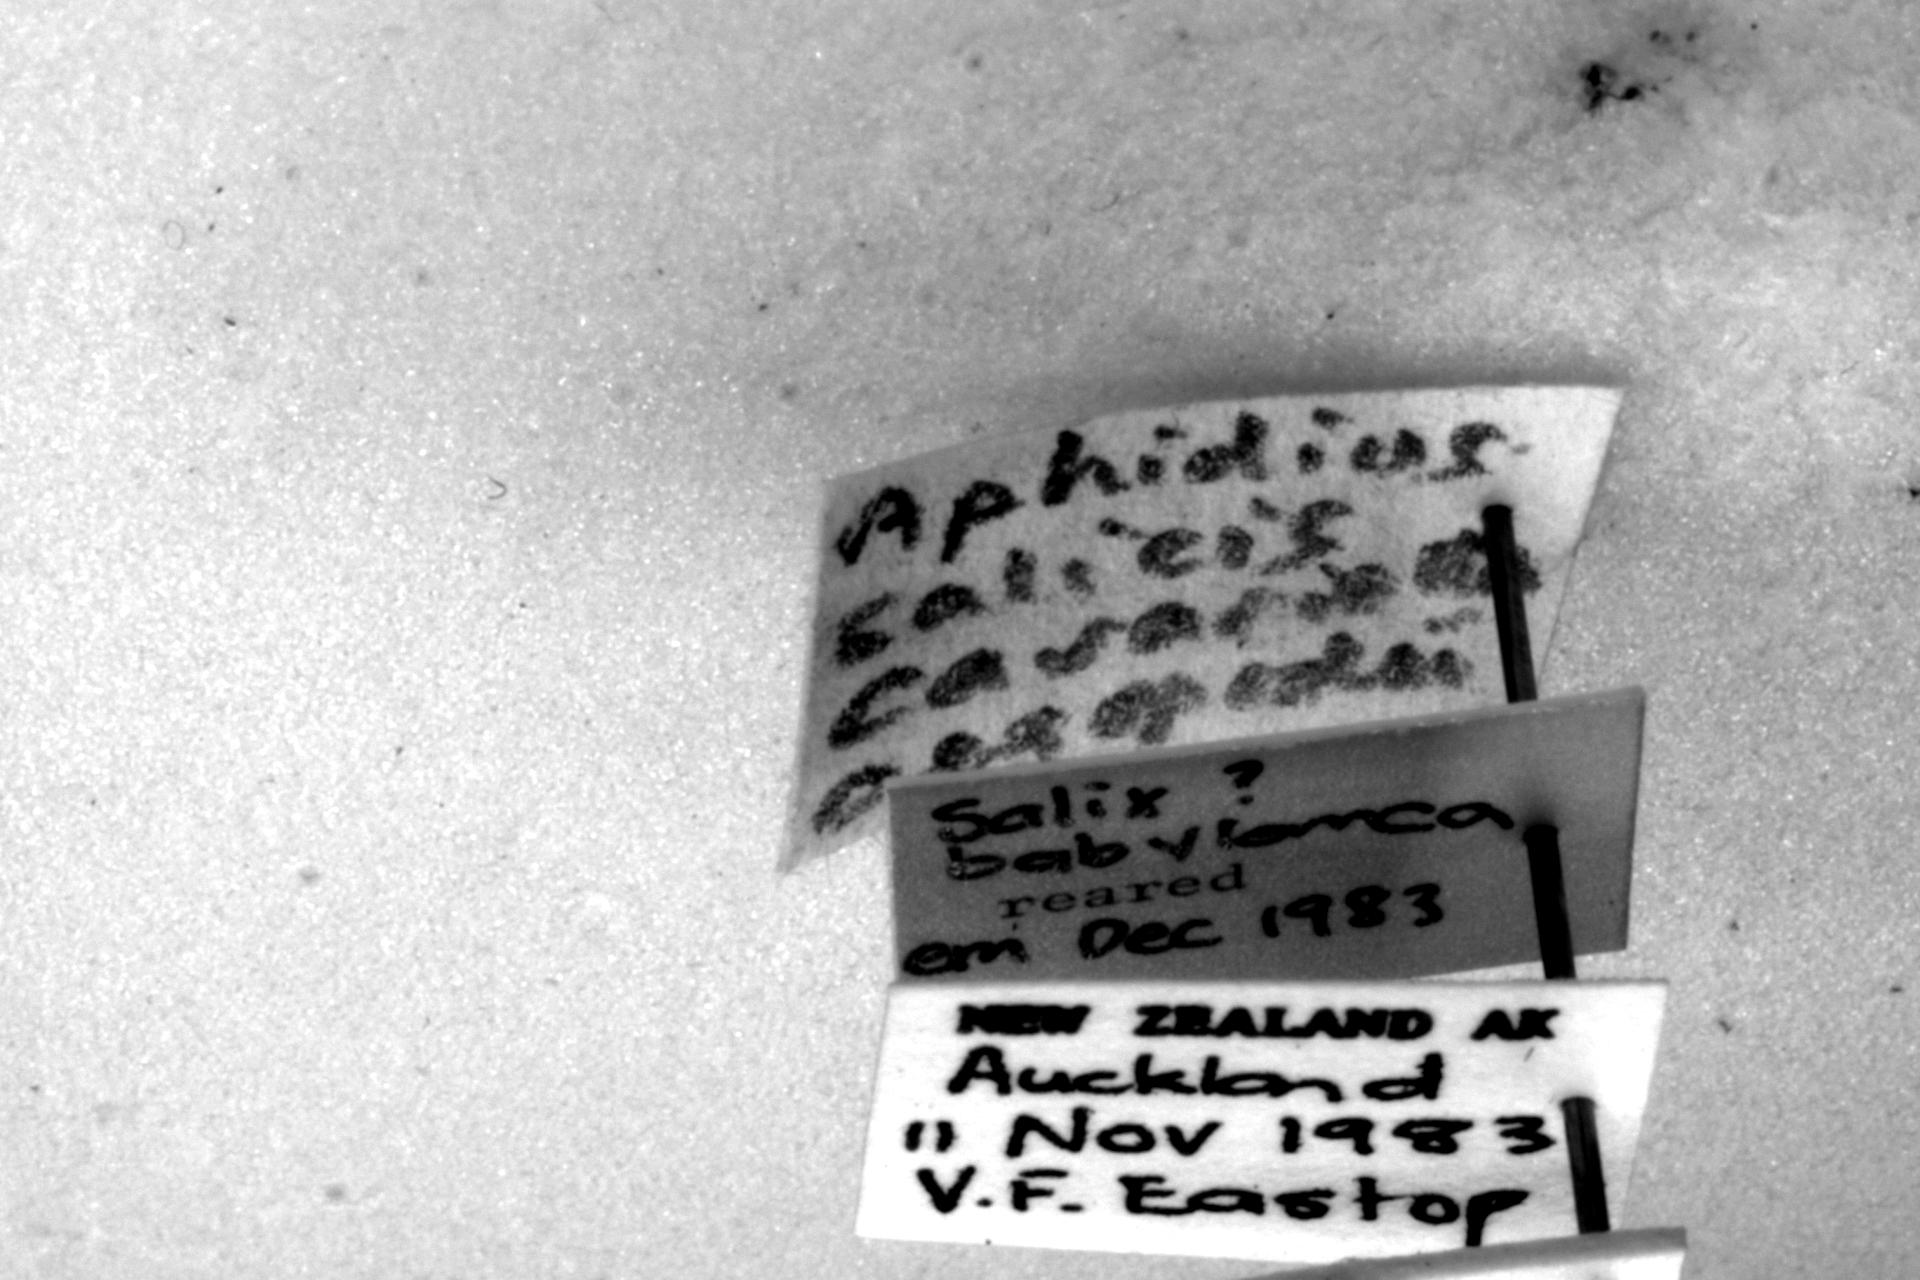 Aphidius
salicis
Cavariella
aegopodii
Salix ?
babylonica
reared
em Dec 1983
NEW ZEALAND AK
Auckland
11 Nov 1983
V.F. Eastop